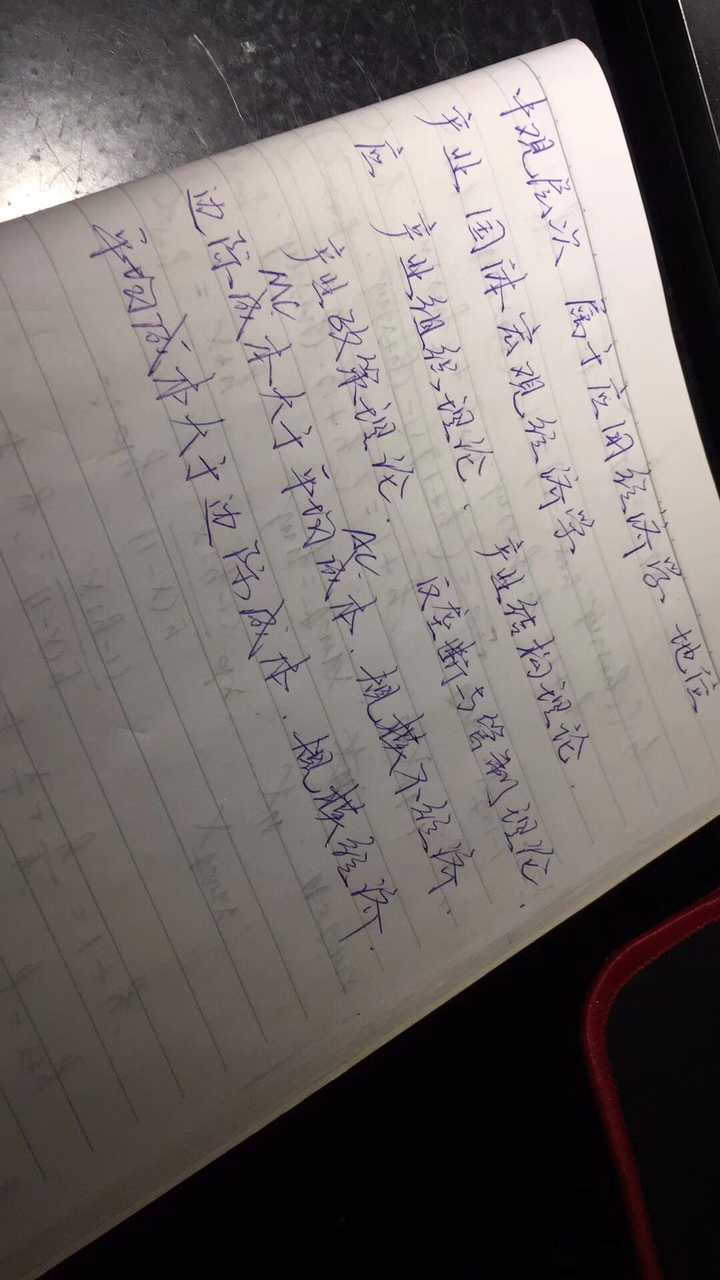 中观层次 属于应用经济学 地位
产业 国民宏观经济学
应 产业组织理论. 产业结构理论.
产业政策理论. 反垄断与管制理论.
MC AC.
边际成本大于平均成本. 规模不经济.
平均成本大于边际成本. 规模经济.